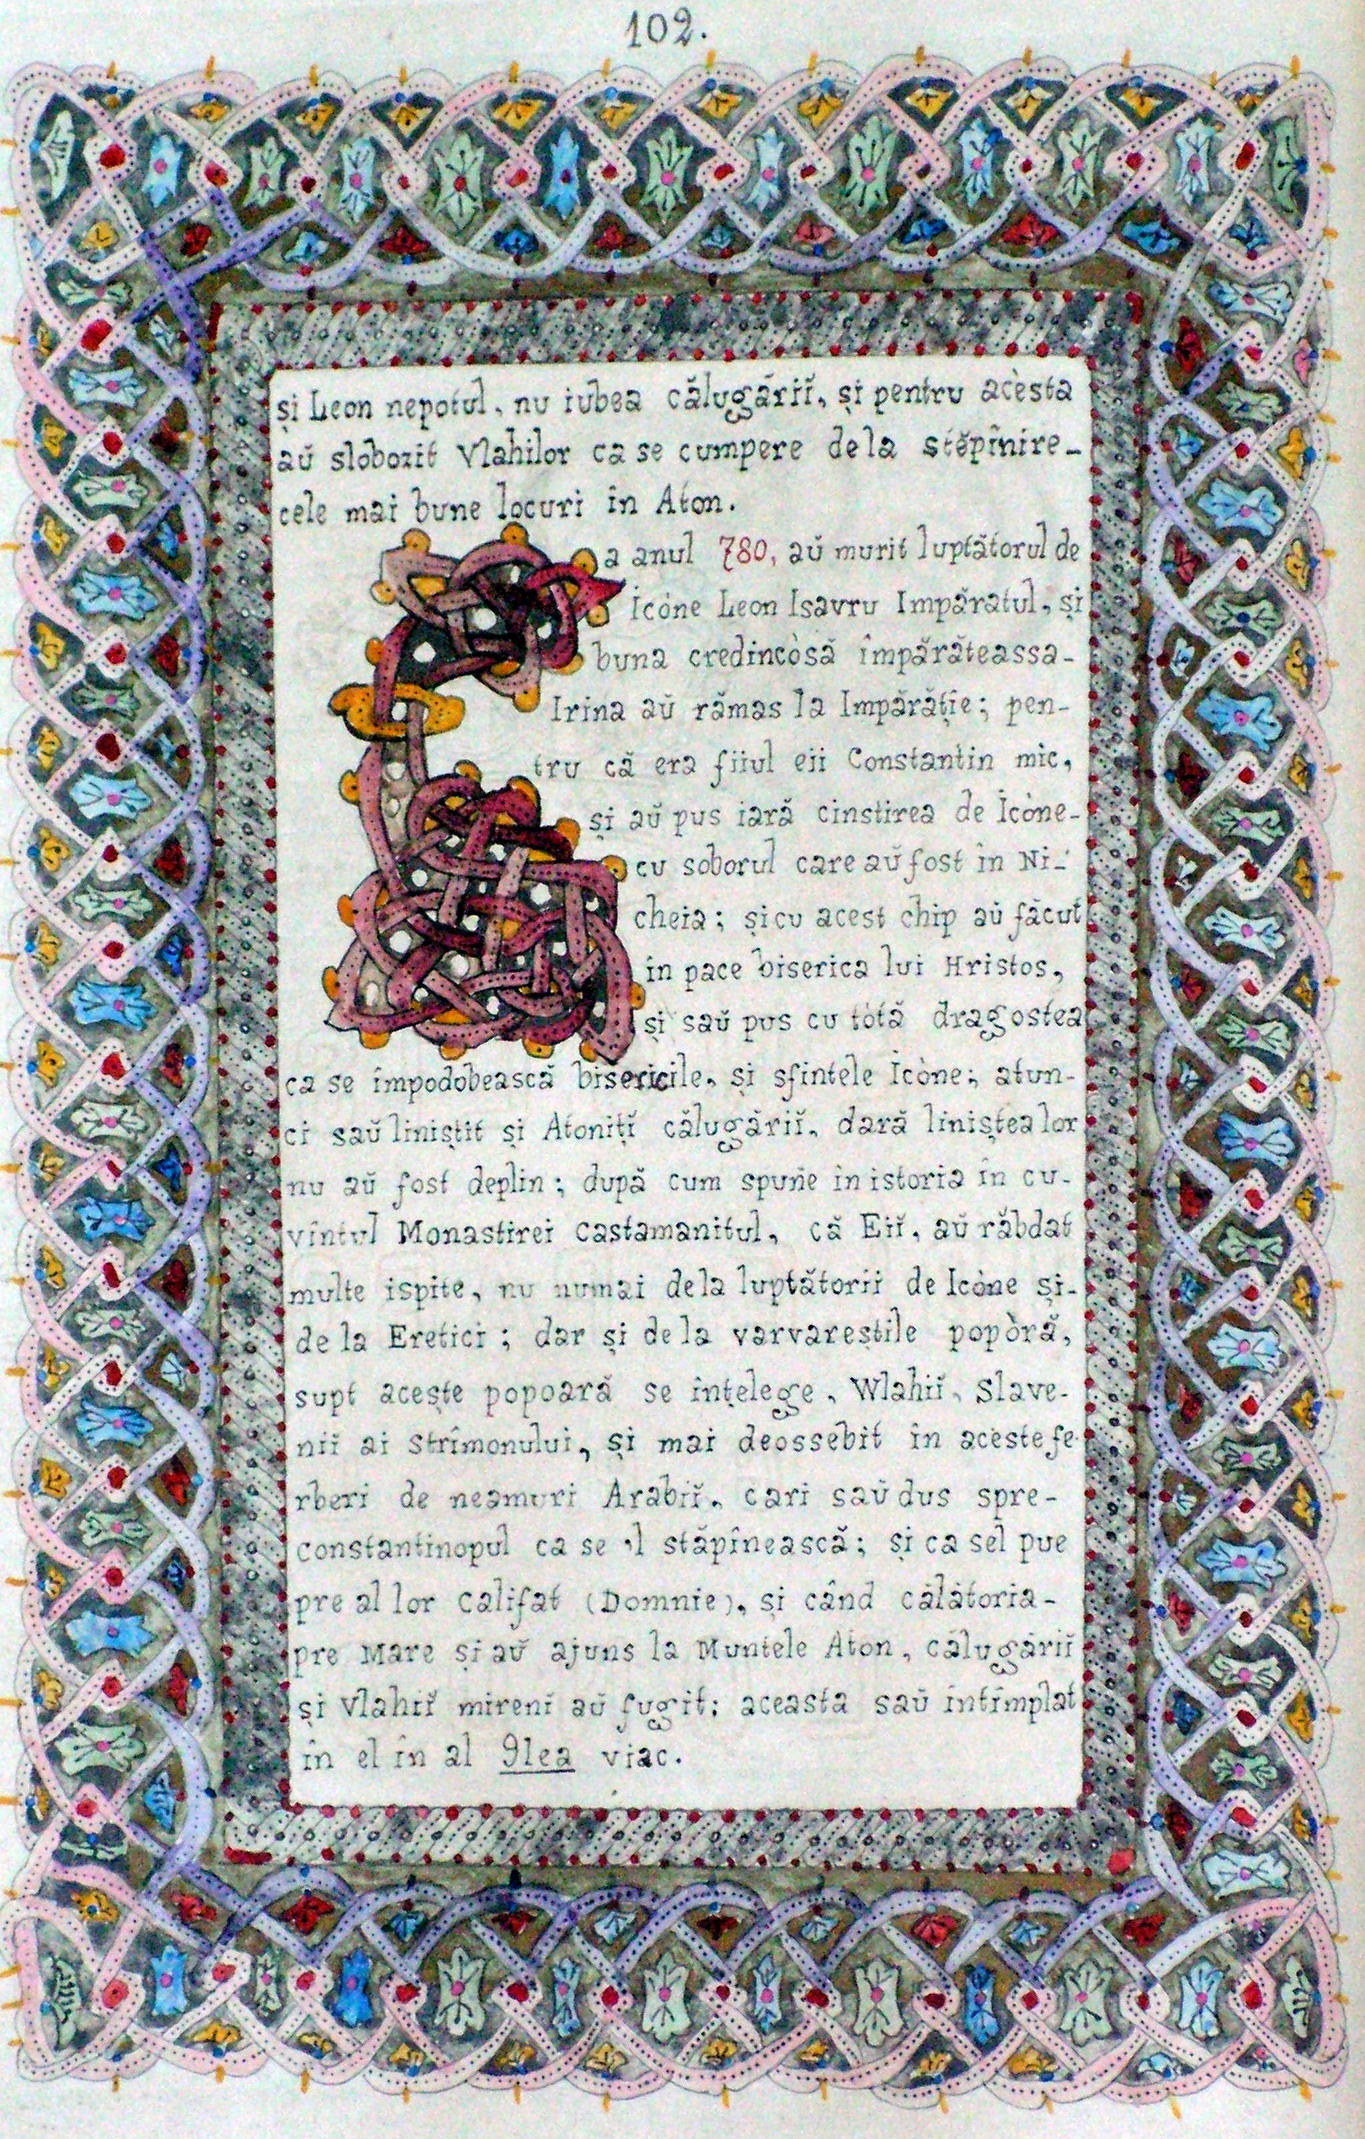 102.
și Leon nepotul, nu iubea călugării, și pentru acèsta
aŭ slobozit Vlahilor ca se cumpere de la stĕpînire-
cele mai bune locuri în Aton.
La anul 780, aŭ murit luptătorul de
Icòne Leon Isavru Impăratul, și
buna credincòsă împărăteassa-
Irina aŭ rămas la Impărăție; pen-
tru că era fiiul eii Constantin mic,
și aŭ pus iară cinstirea de Icòne-
cu soborul care aŭ fost in Ni-
cheia; și cu acest chip aŭ făcut
în pace biserica lui Hristos,
și saŭ pus cu tòtă dragostea
ca se împodobească bisericile, și sfintele Icòne; atun-
ci saŭ liniștit și Atoniți călugării, dară liniștea lor
nu aŭ fost deplin; după cum spune in istoria în cu-
vîntul Monastirei Castamanitul, că Eiĭ, aŭ răbdat
multe ispite, nu numai de la luptătorii de Icòne și-
de la Eretici; dar și de la varvareștile popòră,
supt acește popoară se înțelege, Wlahiĭ, Slave-
nii ai Strîmonului, și mai deossebit în aceste fe-
rberi de neamuri Arabiĭ, cari saŭ dus spre-
constantinopul ca se 'l stăpînească; și ca sel pue
pre al lor califat (Domnie), și când călătoria-
pre Mare și aŭ ajuns la Muntele Aton, călugării
și Vlahiĭ mireni aŭ fugit; aceasta saŭ întîmplat
în el în al 9lea viac.